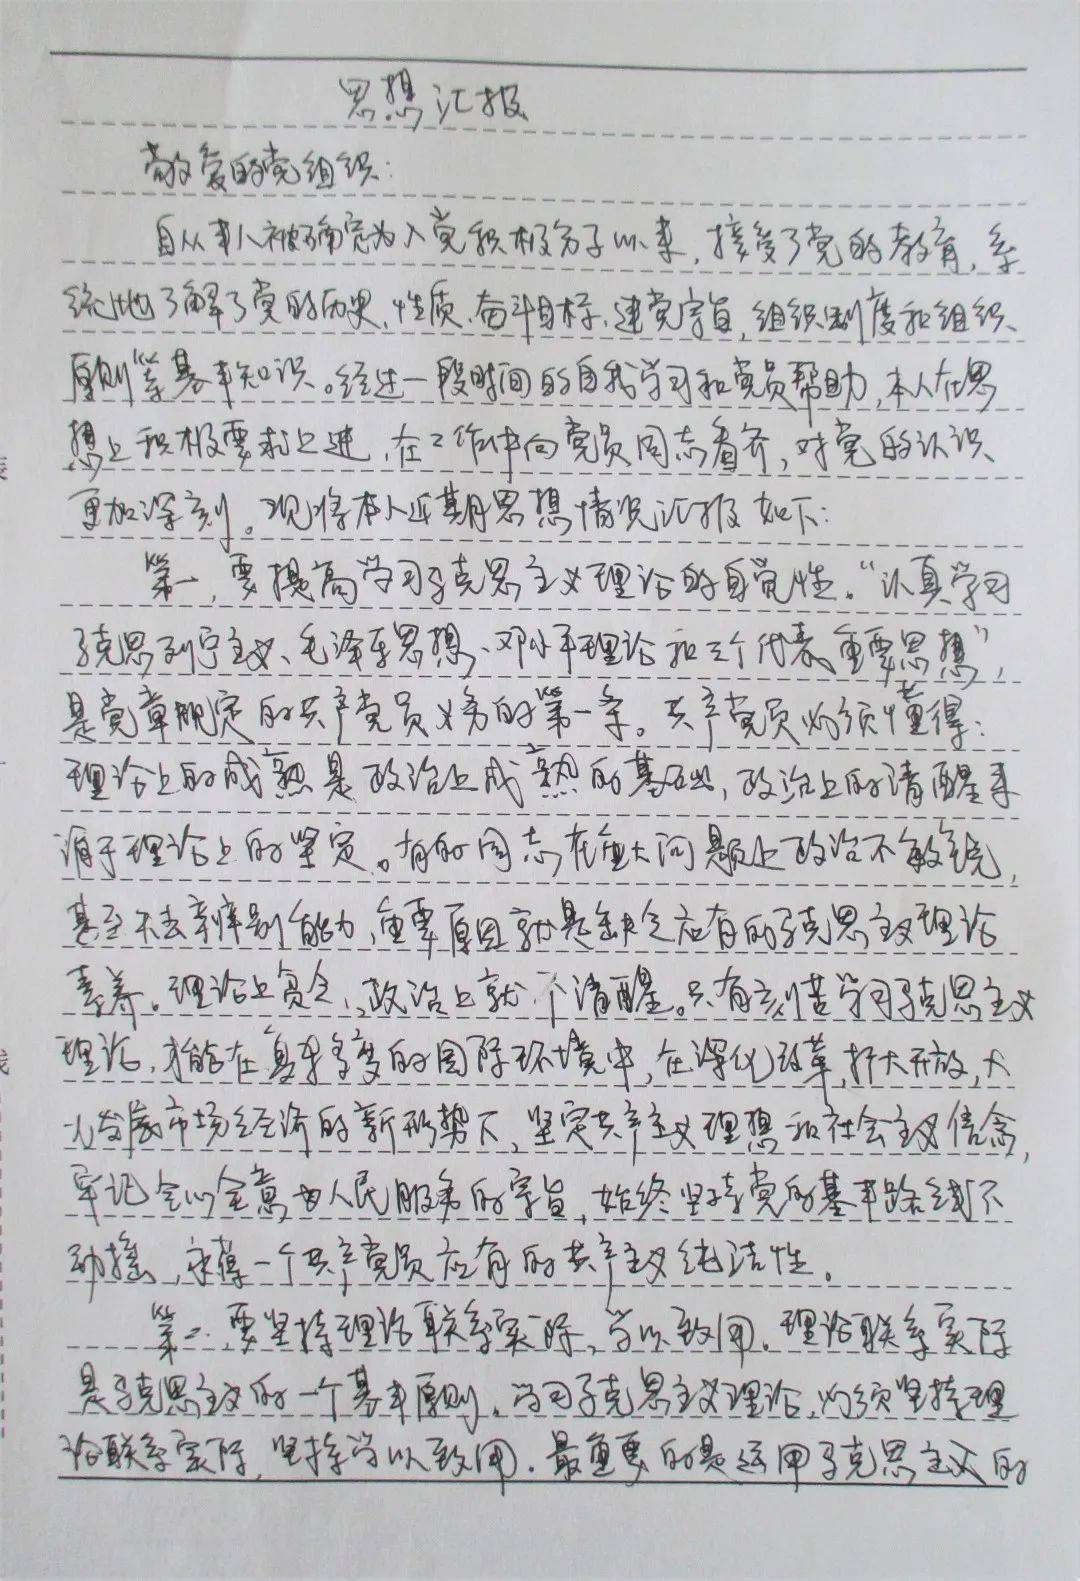 思想汇报
敬爱的党组织：
自从本人被确定为入党积极分子以来，接受了党的教育，系
统地了解了党的历史、性质、奋斗目标、建党宗旨，组织制度和组织
原则等基本知识。经过一段时间的自我学习和党员帮助，本人在思
想上积极要求上进，在工作中向党员同志看齐，对党的认识
更加深刻。现将本人近期思想情况汇报如下：
第一，要提高学习马克思主义理论的自觉性。“认真学习
马克思列宁主义、毛泽东思想、邓小平理论和三个代表重要思想”，
是党章规定的共产党员义务的第一条。共产党员必须懂得：
理论上的成熟是政治上成熟的基础，政治上的清醒来
源于理论上的坚定。有的同志在重大问题上政治不敏锐，
甚至失去辨别能力，重要原因就是缺乏应有的马克思主义理论
素养。理论上贫乏，政治上就不清醒。只有刻苦学习马克思主义
理论，才能在复杂多变的国际环境中，在深化改革，扩大开放，大
力发展市场经济的新形势下，坚定共产主义理想和社会主义信念，
牢记全心全意为人民服务的宗旨，始终坚持党的基本路线不
动摇，永葆一个共产党员应有的共产主义纯洁性。
第二，要坚持理论联系实际，学以致用。理论联系实际
是马克思主义的一个基本原则。学习马克思主义理论，必须坚持理
论联系实际，坚持学以致用。最重要的是运用马克思主义的